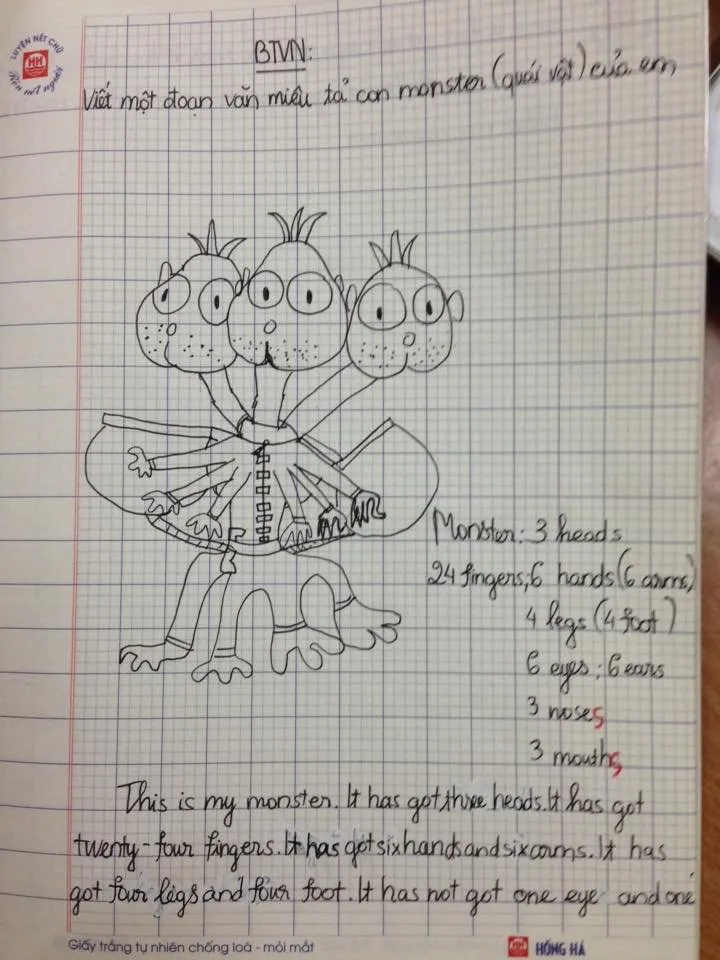 LUYỆN NÉT CHỮ
HH
Rèn nết người
BTVN:
Viết một đoạn văn miêu tả con monster (quái vật) của em
Monster: 3 heads
24 fingers; 6 hands (6 arms)
4 legs (4 foot)
6 eyes; 6 ears
3 noses
3 mouths
This is my monster. It has got three heads. It has got
twenty-four fingers. It has got six hands and six arms. It has
got four legs and four foot. It has not got one eye and one
Giấy trắng tự nhiên chống loá - mỏi mắt
HH HỒNG HÀ